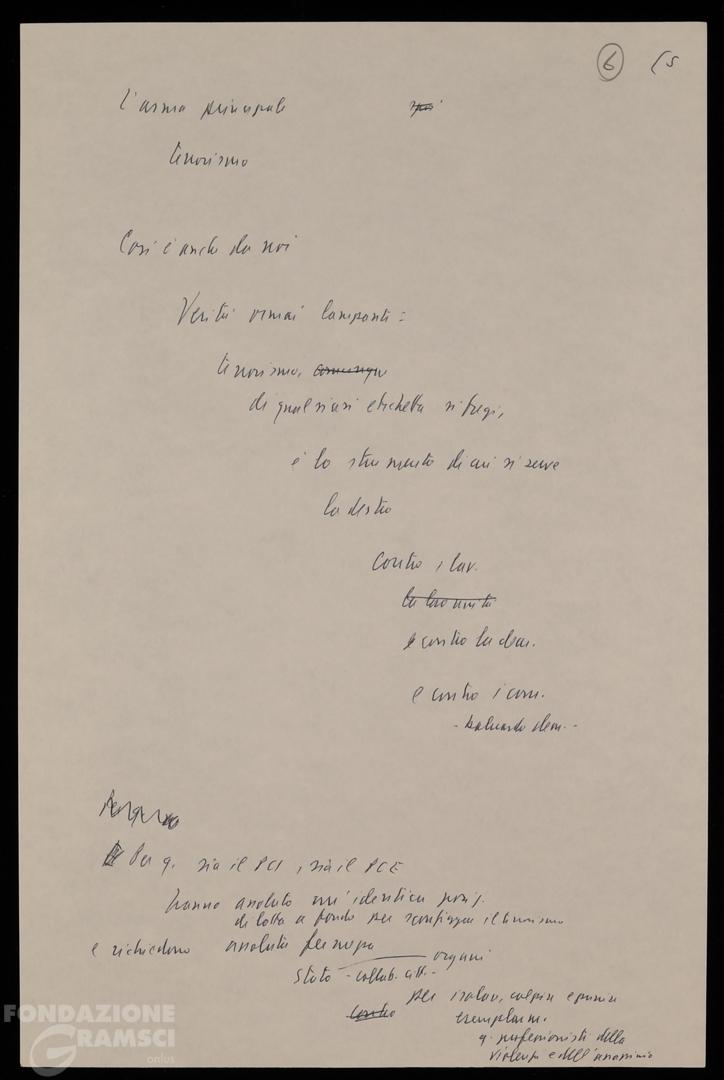 6 (5
L'arma principale spesi
terrorismo
Così è anche da noi
Verità ormai lampanti:
terrorismo, comunque
di qualsiasi etichetta si fregi,
è lo strumento di cui si serve
la destra
contro i lav.
la loro unità
e contro la dem.
e contro i com.
- baluardo dem. -
Per q. sia il PCI, sia il PCE
hanno assoluta un'identica posiz.
di lotta a fondo per sconfiggere il terrorismo
e richiedono assoluta fermezza
Stato - collab. citt. - organi
per isolare, colpire e punire
contro esemplarm.
q. professionisti della
violenza e dell'assassinio
FONDAZIONE
GRAMSCI
onlus